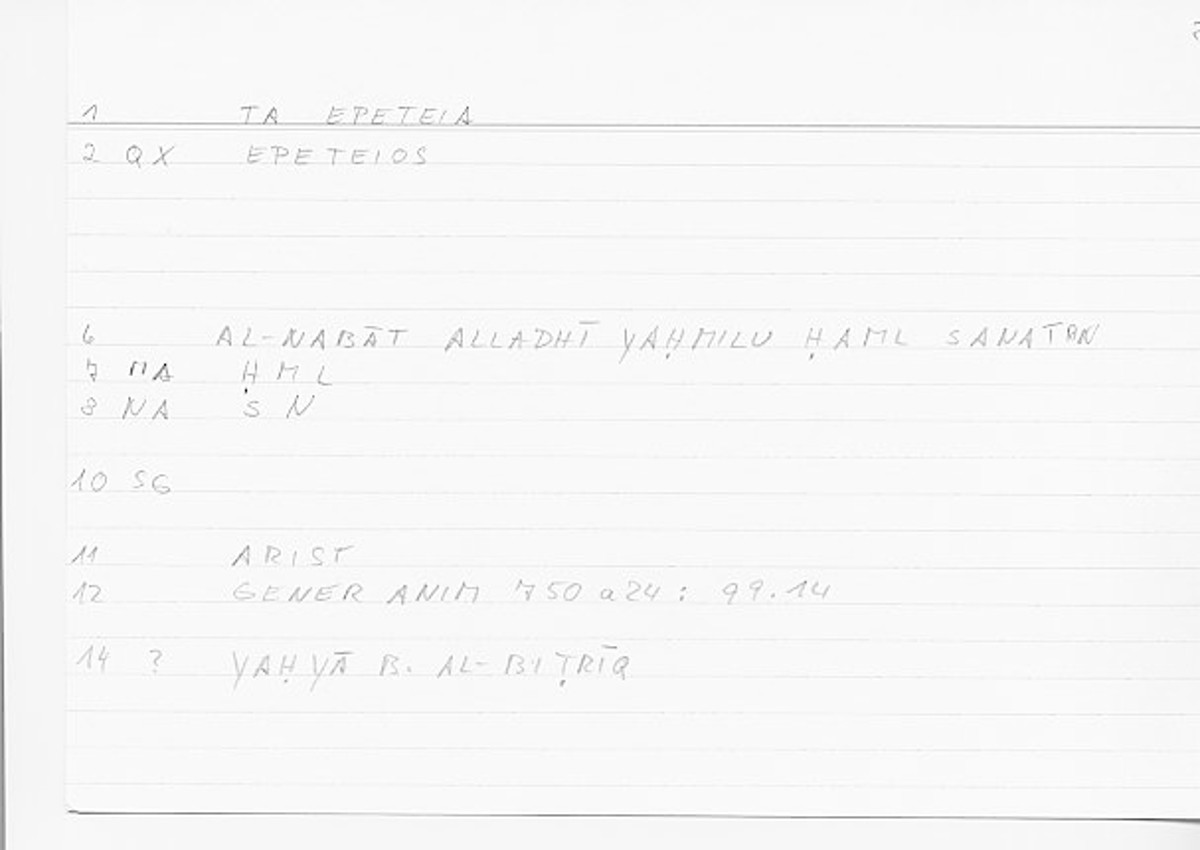 1 TA EPETEIA
2 QX EPETEIOS
6 AL-NABĀT ALLADHĪ YAḤMILU ḤAML SANATAN
7 NA ḤML
8 NA SN
10 SG
11 ARIST
12 GENER ANIM 750 a24: 99.14
14 ? YAḤYĀ B. AL-BIṬRĪQ